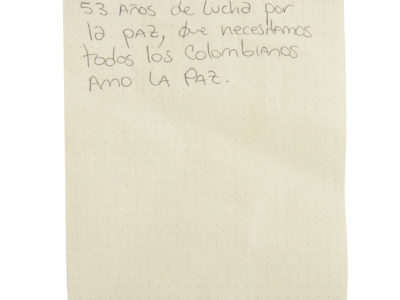 53 Años de lucha por
la paz, que necesitamos
todos los Colombianos
Amo la Paz.